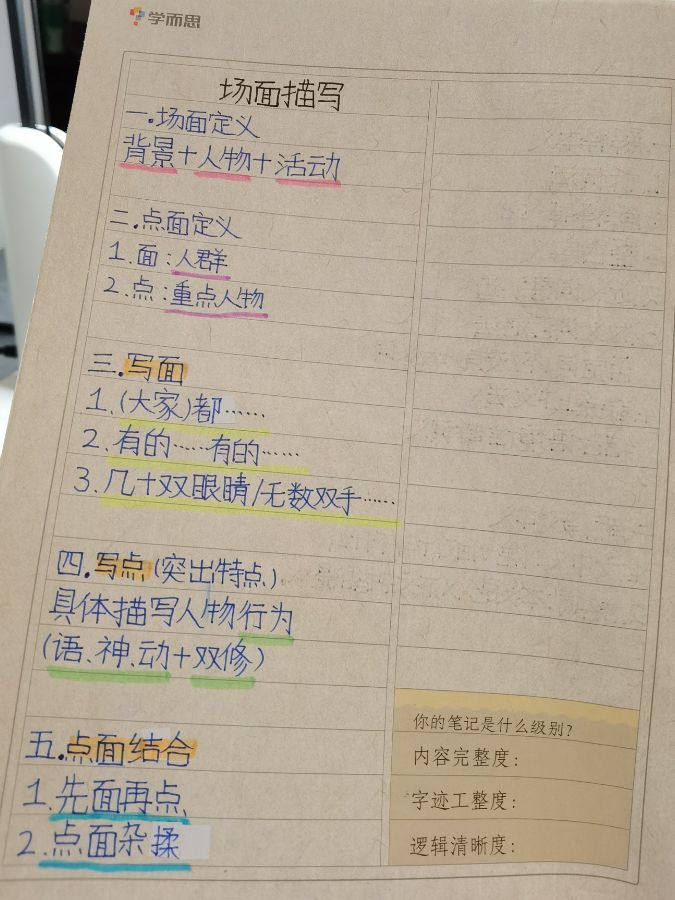 学而思
场面描写
一.场面定义
背景+人物+活动
二.点面定义
1.面:人群
2.点:重点人物
三.写面
1.(大家)都……
2.有的……有的……
3.几十双眼睛/无数双手……
四.写点(突出特点)
具体描写人物行为
(语、神、动+双修)
五.点面结合
1.先面再点、
2.点面杂揉
你的笔记是什么级别?
内容完整度:
字迹工整度:
逻辑清晰度: